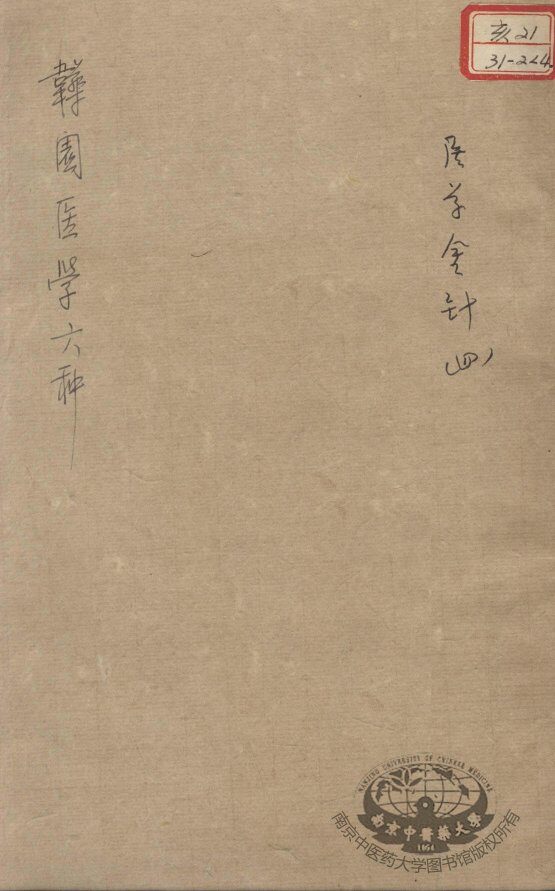 亥21
31-224.
医学金针 四
韡園医学六种
NANJING UNIVERSITY OF CHINESE MEDICINE
南京中醫藥大學
1954
南京中医药大学图书馆版权所有